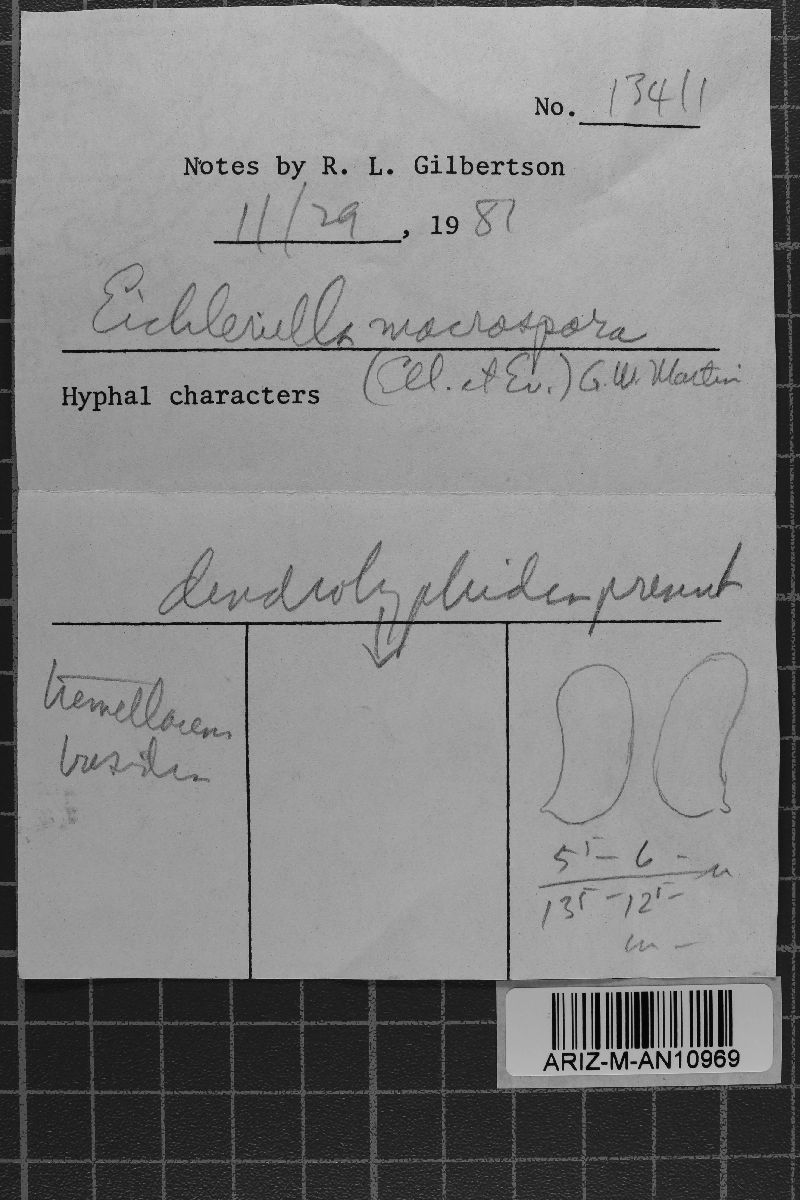 No. 13411
Notes by R. L. Gilbertson
11/29, 1981
Eichleriella macrospora
(Ell. et Ev.) G. W. Martin
Hyphal characters
dendrohyphidia present
tremellaceous
basidia
5⁵ - 6 -
13⁵ - 12⁵ -
ARIZ-M-AN10969